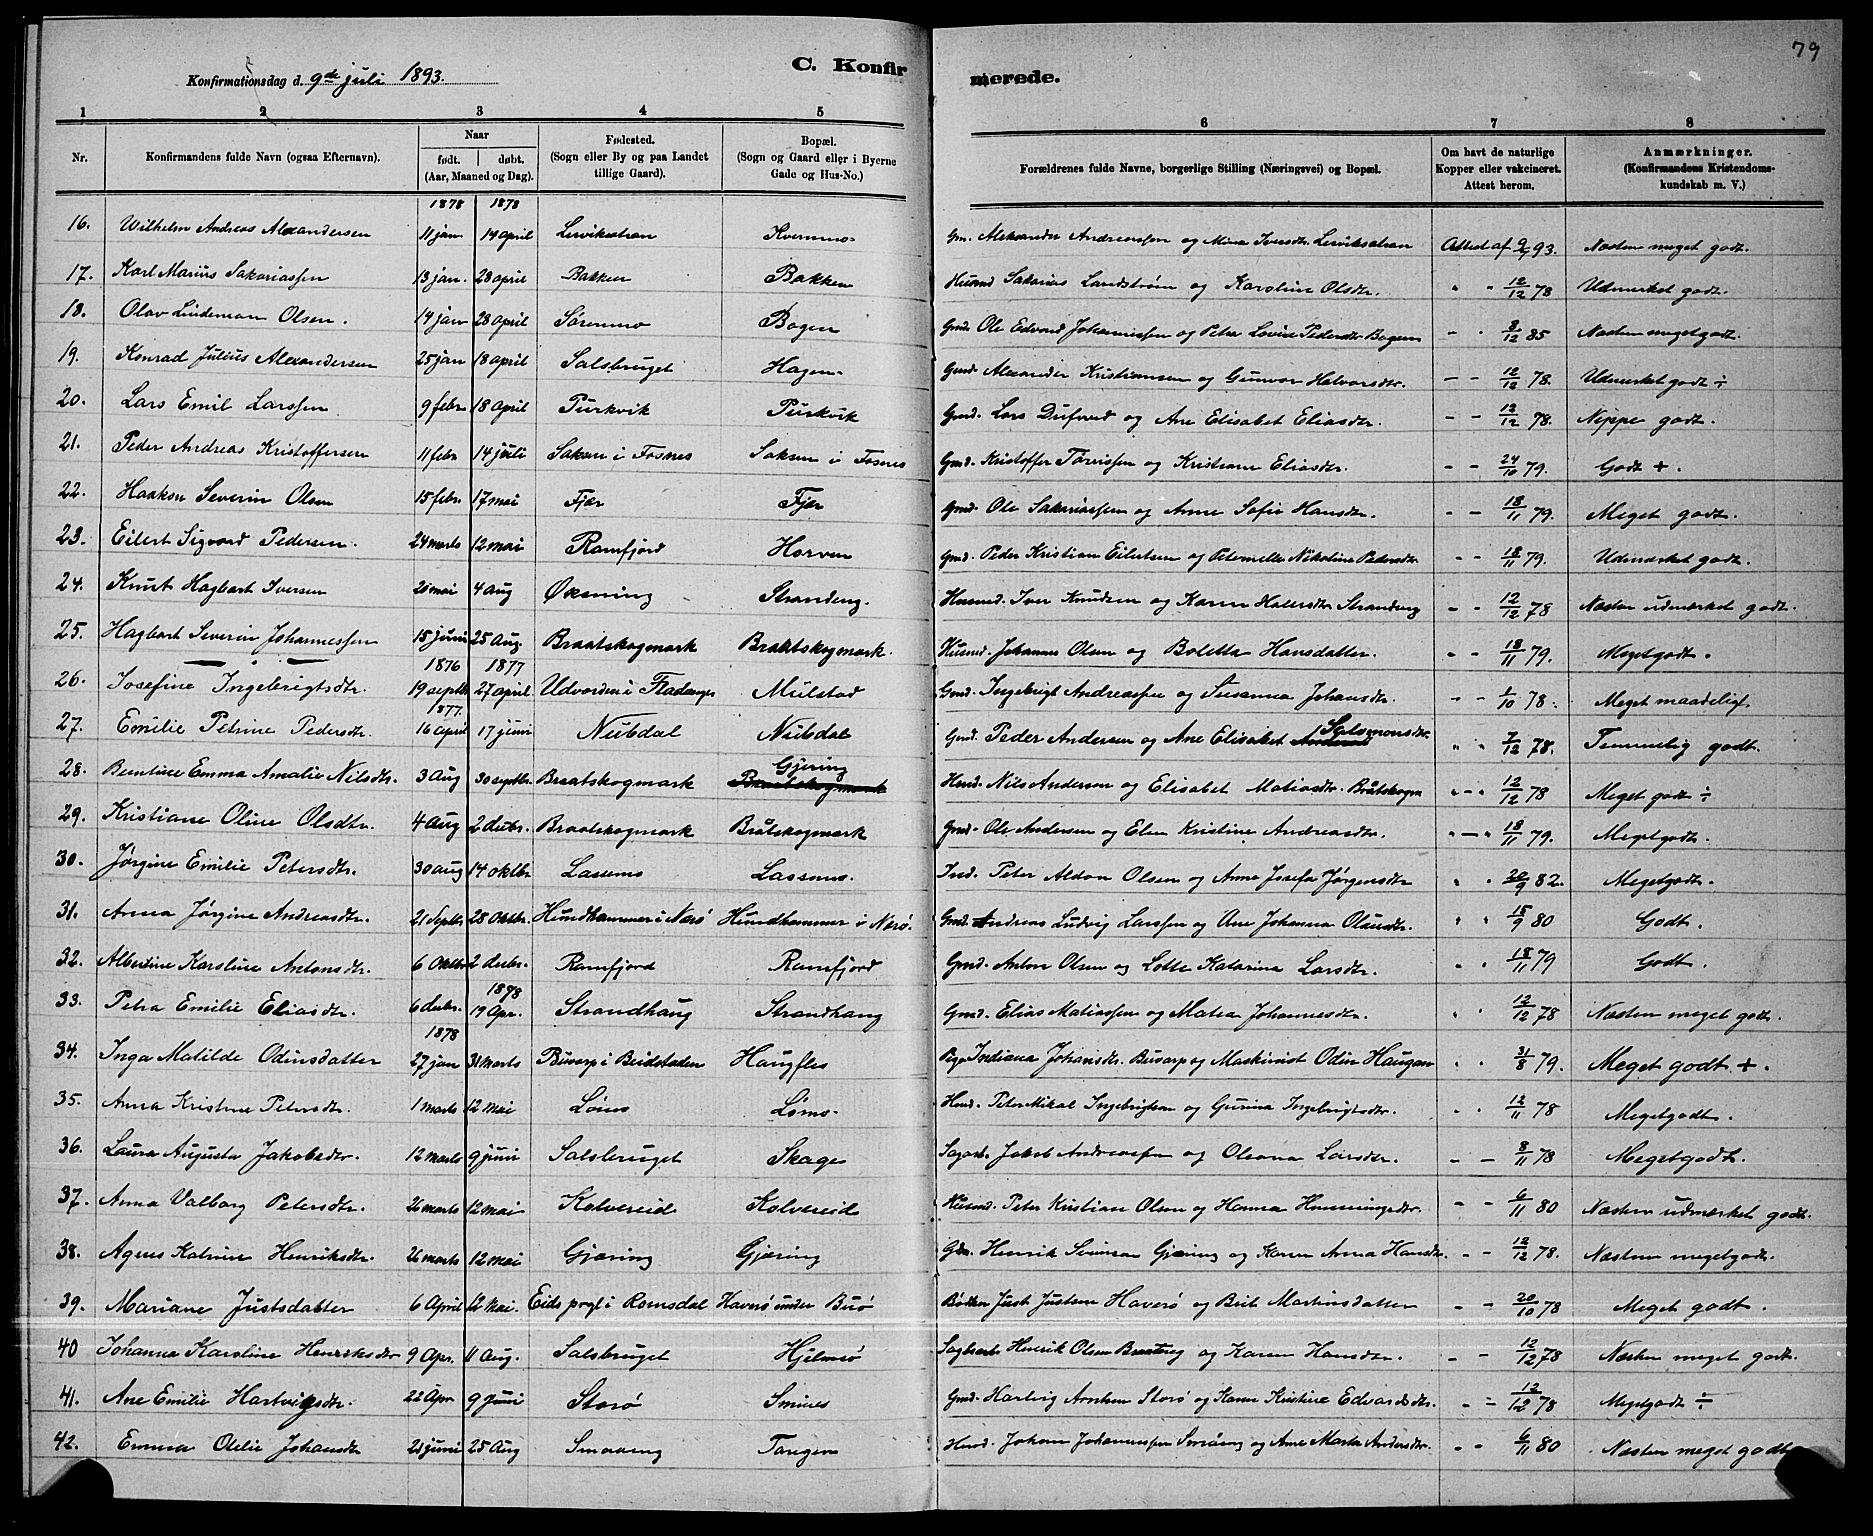 79
Konfirmationsdag d. 9de juli 1893.
C. Konfirmerede.
1 2 3 4 5 6 7 8
Nr. Konfirmandens fulde Navn (ogsaa Efternavn). Naar født. døbt. (Aar, Maaned og Dag). Fødested. (Sogn eller By og paa Landet tillige Gaard). Bopæl. (Sogn og Gaard eller i Byerne Gade og Hus-No.) Forældrenes fulde Navne, borgerlige Stilling (Næringsvei) og Bopæl. Om havt de naturlige Kopper eller vakcineret. Attest herom. Anmærkninger. (Konfirmandens Kristendomskundskab m. V.)
1878 1878
16. Wilhelm Andreas Alexandersen 11 jan 14 april Lervikstran Kvernmo Gm. Aleksander Andreassen og Mina Iversdtr. Lervikstran Attest af 93. Næsten meget godt.
17. Karl Marius Sakariassen 13 jan. 28 april Bakken Bakken Husmd Sakarias Landstrøm og Karoline Olsdtr. " " 12/12 78 Udmerket godt.
18. Olav Lindeman Olsen. 14 jan 28 april Sørenmo Bogen Gmd. Ole Edvard Johannessen og Petra Lovise Pedersdtr Bogen - - 8/12 85 Næsten megetgodt.
19. Konrad Julius Alexandersen 25 jan 18 april Salsbruget Hagen Gmd. Alexander Kristiansen og Gunvor Halvorsdtr. - - 12/12 78. Udmerket godt ÷
20. Lars Emil Larssen 9 febr. 18 april Purkvik Purkvik Gmd. Lars og Ane Elisabet Eliasdtr. - - 13/12 78. Neppe godt.
21. Peder Andreas Kristoffersen 11 febr 14 juli Saksen i Fosnes Saksen i Fosnes Gmd. Kristoffer Tørrissen og Kristiane Eliasdtr. - - 24/10 79. Godt +.
22. Haakon Severin Olsen 15 febr. 17 mai Fjær Fjær Gmd. Ole Sakariassen og Anne Sofie Hansdtr. - - 18/11 79. Meget godt.
23. Eilert Sigvard Pedersen. 24 marts 12 mai Ramfjord Horven Gmd. Peder Kristian Eilertsen og Peternelle Nikoline Pedersdtr - - 18/11 79. Udmerket godt.
24. Knut Hagbart Iversen 20 mai 4 aug Øksning Strandeng. Husmd. Iver Knudsen og Karen Strandeng - - 12/12 78 Næsten udmerket godt.
25. Hagbart Severin Johannessen 15 juni 25 aug. Braatskogmark Braatskogmark. Husmd. Johannes Olsen og Boletta Hansdatter. - - 18/11 79. Megetgodt.
1876 1877
26. Josefine Ingebrigtsdtr. 19 septbr 27 april Udvorden i Fladanger Mulstad Gmd. Ingebrigt Andreassen og Susanna Johansdtr. - - 1/10 78. Meget maadelig.
1877.
27. Emilie Petrine Pedersdtr. 16 april 17 juni Nubdal Nubdal Gmd. Peder Andersen og Ane Elisabet Salomonsdtr. " " 7/12 78. Temmelig godt.
28. Berntine Emma Amalie Nilsdtr. 3 Aug 30 septbr. Braatskogmark Gjering Braatskogmark Hmd. Nils Andersen og Elisabet Matiasdtr. Bråtskogm " - " 12/12 78 Meget godt ÷
29. Kristiane Oline Olsdtr. 4 Aug 2 decbr. Braatskogmark Bråtskogmark Gmd. Ole Andersen og Elen Kristine Andreasdtr. " - " 18/11 79. Megetgodt.
30. Jørgine Emilie Petersdtr. 30 aug 14 oktbr. Lassemo Lassemo Ind. Peter Aldon Olsen og Anne Josefa Jørgensdtr " " 20/9 82. Megetgodt.
31. Anna Jørgine Andreasdtr. 21 Septbr 28 Oktbr. Hundhammer i Nærø Hundhammer i Nærø. Gmd. Andreas Ludvig Larssen og Ane Johanna Olausdtr. " " 15/9 80 Godt.
32. Albertine Karoline Antonsdtr. 6 Oktbr 2 decbr. Ramfjord Ramfjord Gmd. Anton Olsen og Lotte Katarina Larsdtr. " " 18/11 79 Godt.
1878
33. Petra Emilie Eliasdtr. 6 decbr. 19 Apr. Strandhaug Strandhaug Gmd. Elias Matiassen og Matea Johannesdtr. " " 12/12 78 Næsten meget godt.
1878
34. Inga Matilde Odinsdatter 27 jan 31 marts Buvarp i Beidstaden Haugfles Pige Indiana Johansdtr. Buvarp og Maskinist Odin Haugan " " 31/8 79. Meget godt +.
35. Anna Kristine Petersdtr. 1 marts 12 mai Lømo Lømo. Hmd. Peter Mikal Ingebrigtsen og Gurina Ingebrigtsdtr. " " 12/11 78 Megetgodt.
36. Laura Augusta Jakobsdtr. 12 marts 9 juni Salsbruget Skage Sagarb. Jakob Andreassen og Oleana Larsdtr. - - 8/11 78 Megetgodt.
37. Anna Valborg Petersdtr. 26 marts 12 mai Kolvereid Kolvereid Husmd. Peter Kristian Olsen og Hanna Henningsdtr. - - 6/11 80 Næsten udmerket godt.
38. Agnes Katrine Henriksdtr. 26 marts 12 mai Gjæring Gjæring Gdm. Henrik Gjæring og Karen Anna Hansdtr. - - 12/12 78. Næsten megetgodt.
39. Mariane Justsdatter 6 April 12 Mai. Eids prgl i Romsdal Haverø under Buø Bødker Just Justsen Haverø og Brit Martinsdatter - - 20/10 78 Meget godt.
40 Johanna Karoline Henriksdtr 9 Apr. 11 Aug. Salsbruget Hjelmsø Sagbarb. Henrik Olsen og Karen Hansdtr. - - 12/12 78 Næsten meget godt.
41. Ane Emilie Hartvigsdtr. 22 Apr 9 Juni Storø Smines Gmd. Hartvig Arntsen Storø og Karen Kristine Edvardsdtr. - - 12/12 78 Megetgodt ÷
42. Emma Otelie Johansdtr 21 juni 25 Aug Smaaeng Tangen Hmd. Johan Johannessen Småeng og Ane Marta Andersdtr. - - 6/11 80 Næsten meget godt